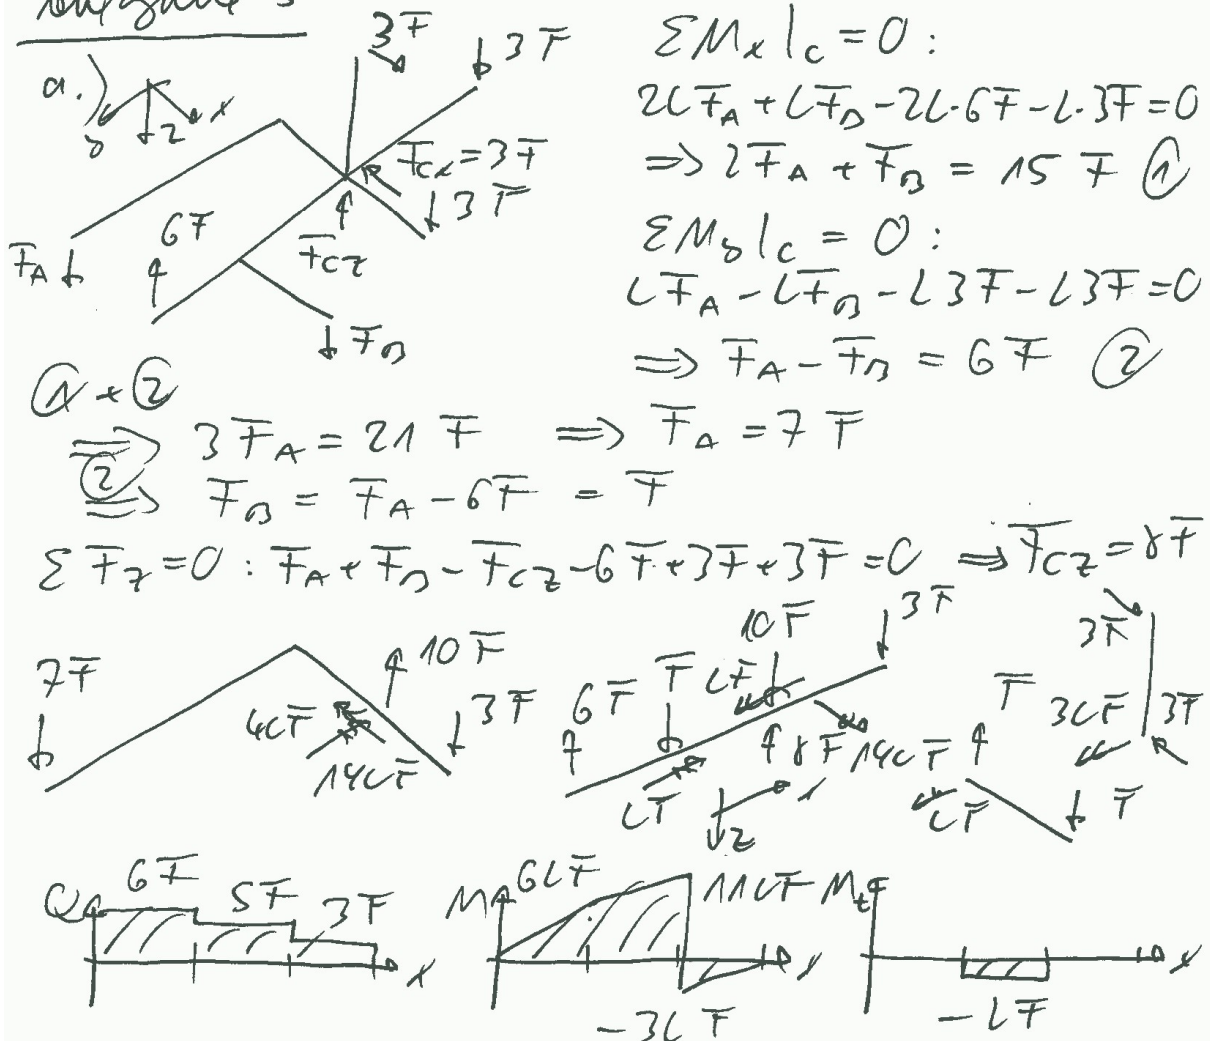 a.)
x
y
z
3F
3F
F_Cx = 3F
3F
6F
F_A
F_CZ
F_B
ΣM_x|_C = 0 :
2LF_A + LF_B - 2L·6F - L·3F = 0
=> 2F_A + F_B = 15 F ①
ΣM_y|_C = 0 :
LF_A - LF_B - L3F - L3F = 0
=> F_A - F_B = 6F ②
① + ②
=> 3F_A = 21 F => F_A = 7F
② => F_B = F_A - 6F = F
ΣF_z = 0 : F_A + F_B - F_CZ - 6F + 3F + 3F = 0 => F_CZ = 8F
7F
10F
3F
4LF
14LF
6F
F
LF
10F
3F
LF
8F
14LF
x
z
3F
F
3LF
3F
LF
F
Q
6F
5F
3F
x
M
6LF
11LF
-3LF
x
M_t
-LF
x